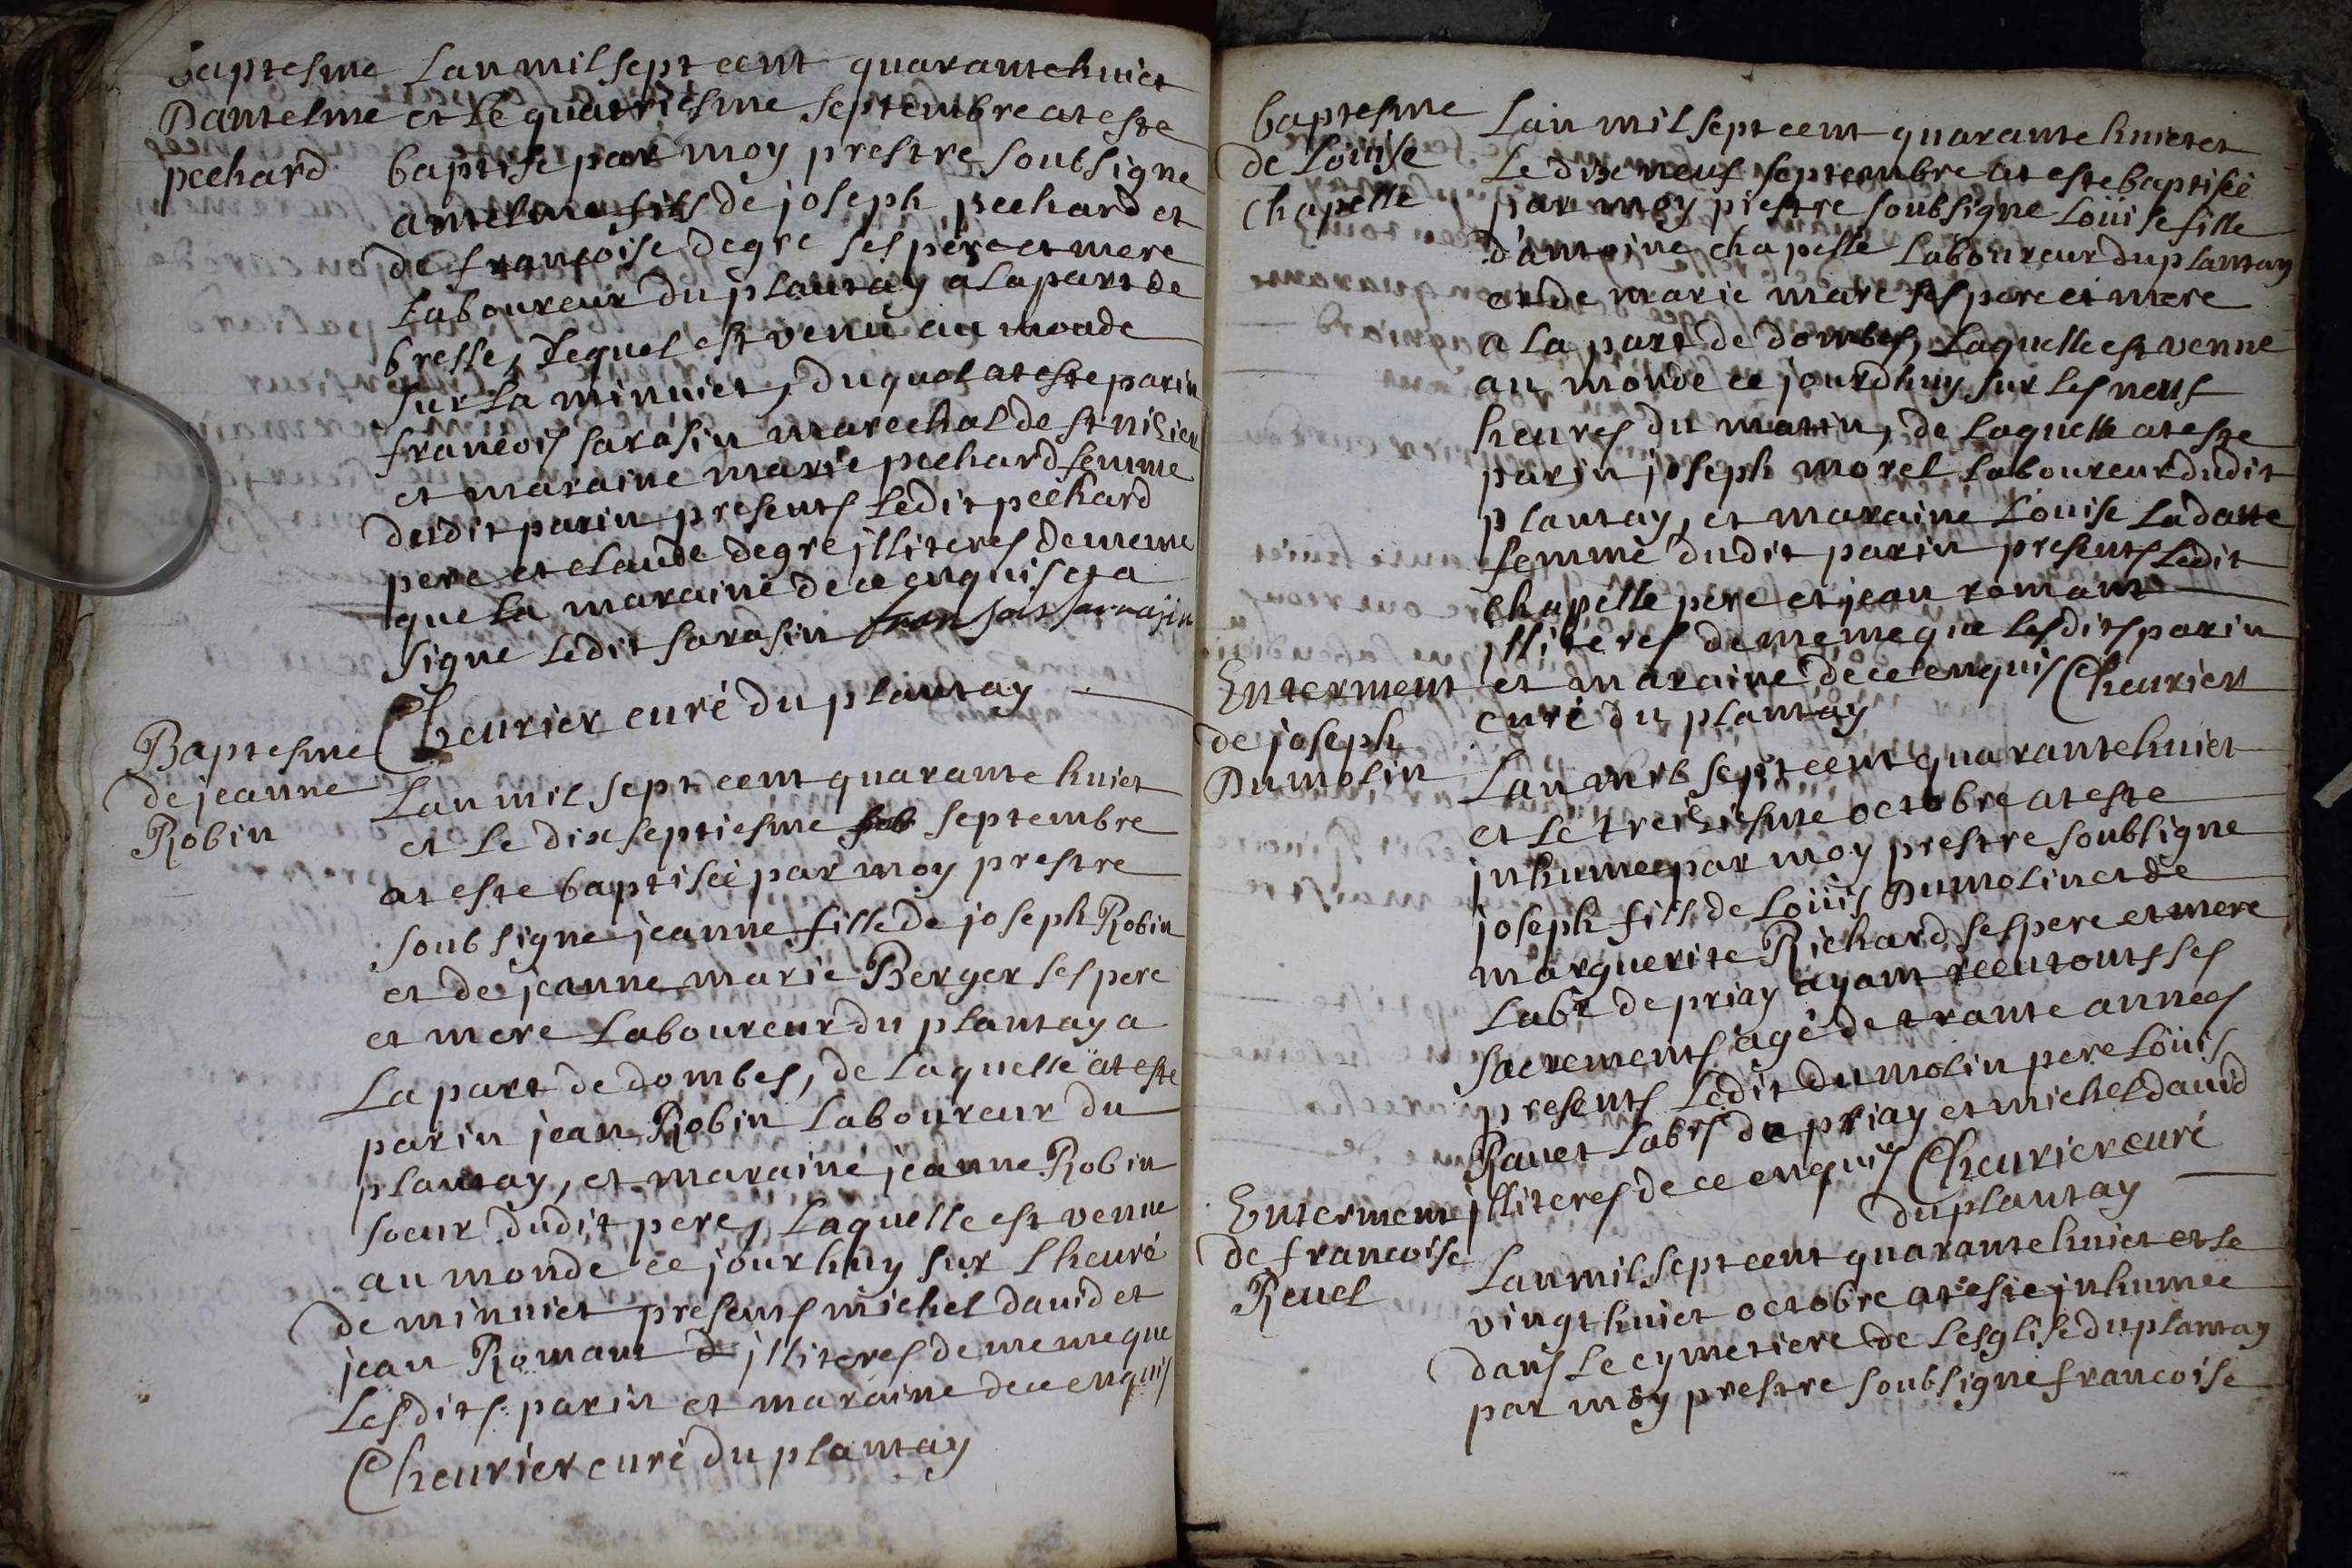 Baptesme
Dantelme
pechard
Lan mil sept cent quarante huict
et le quatriesme septembre at este
baptise par moy prestre soubsigne
antelme fils de joseph pechard et
de françoise degre ses père et mere
laboureur du plantay a la part de
bresse, lequel est venu au monde
sur la minuict, duquel at este parin
francois sarasin marechal de st nisier
et maraine marie pechard femme
dudit parin presents ledit pechard
pere et claude degre jlliteres de meme
que la maraine de ce enquis et a
signe ledit sarasin fransois sarrasin
Cheurier curé du plantay
Baptesme
de jeanne
Robin
Lan mil sept cent quarante huict
et le dixseptiesme septembre
at este baptiséé par moy prestre
soubsigne jeanne fille de joseph Robin
et de jeanne marie Berger ses pere
et mere laboureur du plantay a
La part de dombes, de laquelle at este
parin jean Robin laboureur du
plantay, et maraine jeanne Robin
soeur dudit pere, laquelle est venue
au monde ce jourhuy sur lheure
de minuict presents michel david et
jean Romant jlliteres de meme que
Lesdits parin et maraine de ce enquis
Cheurier curé du plantay
baptesme
de Loüise
chapelle
Lan mil sept cent quarante huict et
le dix neuf septembre at este baptisée
par moy prestre soubsigne Loüise fille
d'antoine chapelle laboureur du plantay
et de marie mare ses pere et mere
a la part de dombes, laquelle est venue
au monde ce jourdhuy sur les neuf
heures du matin, de laquelle at este
parin joseph morel laboureur dudit
plantay, et maraine Loüise Ladatte
femme dudit parin presents ledit
chapelle pere et jean romant
jlliteres de meme que lesdits parin
et maraine de ce enquis Cheurier
curé du plantay
Enterment
de joseph
Dumolin
Lan mil sept cent quarante huict
et le treiziesme octobre at este
jnhumee par moy prestre soubsigne
joseph fils de Loüis Dumolin et de
marguerite Richard ses pere et mere
labr de priay ayant reçu touts ses
sacrements agé de trante années
presents ledit dumolin pere Loüis
Ravet labrs de priay et michel david
jlliteres de ce enquis Cheurier curé
du plantay
Enterment
de francoise
Revel
Lan mil sept cent quarante huict et le
vingt huict octobre at este jnhumée
dans le cymetiere de lesglise du plantay
par moy prestre soubsigne francoise